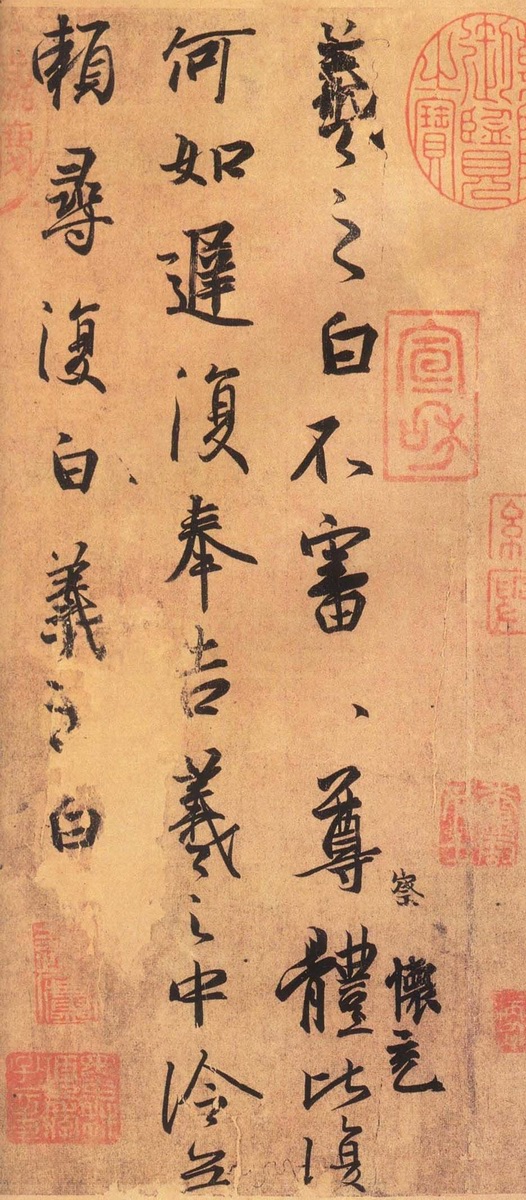 御覽
之寶
宣和
察 懷充
羲之白不審、尊體比復
何如遲復奉告羲之中冷無
賴尋復白羲之白